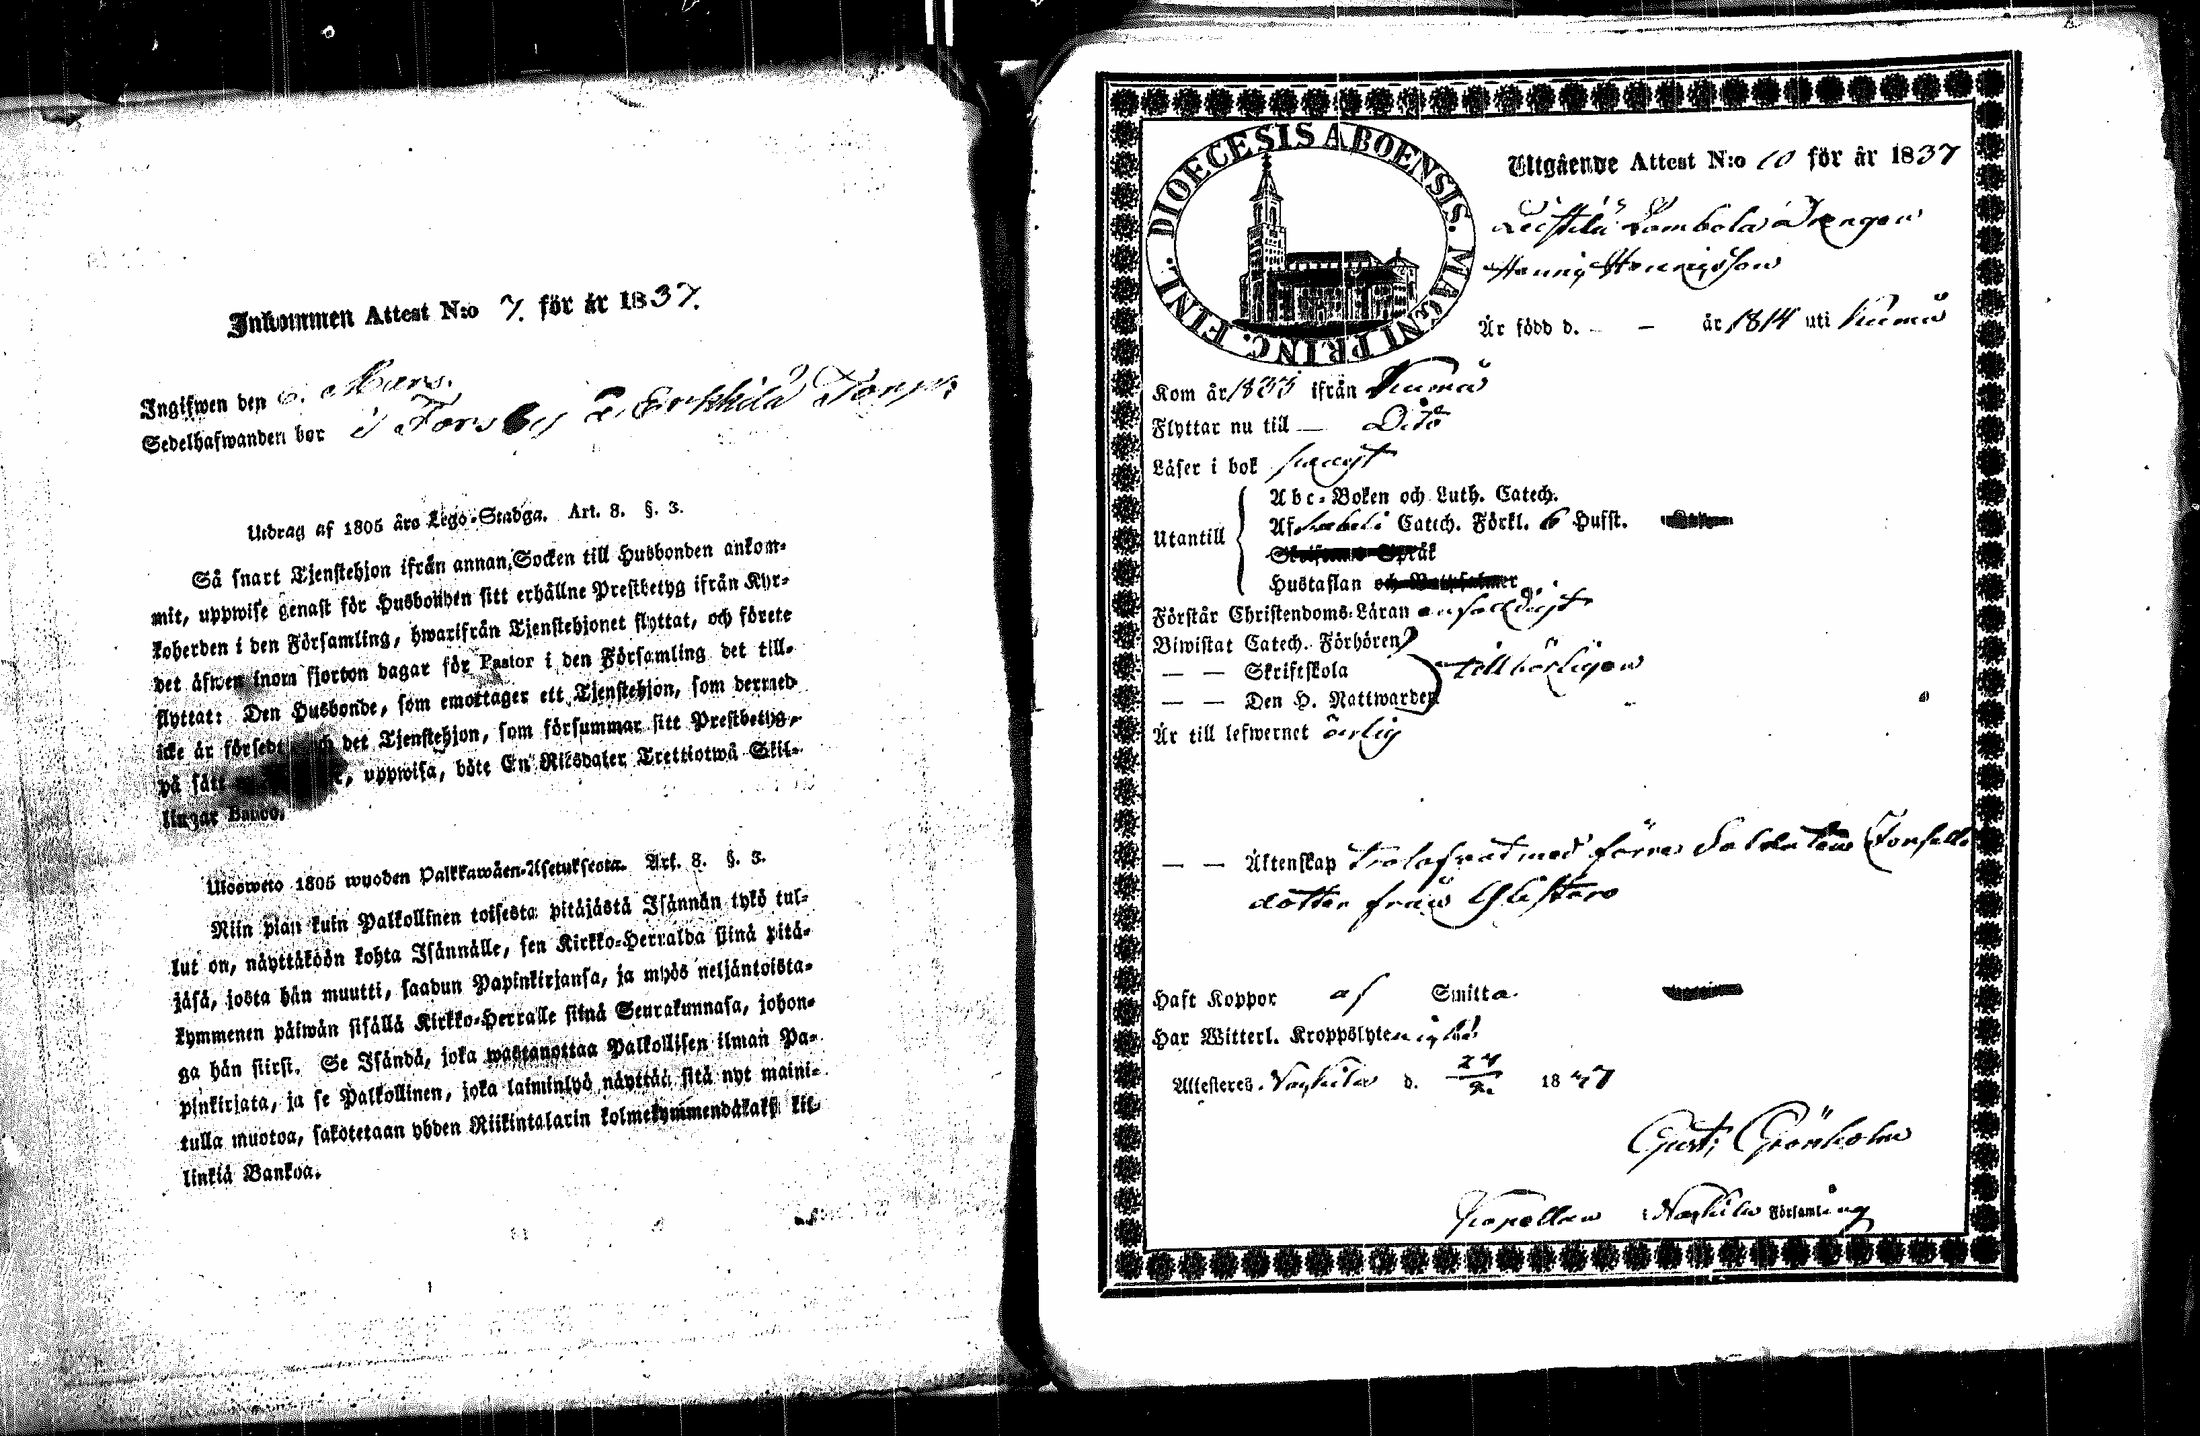 Inkommen Attest N:o 7. för år 1837.
Ingifwen den 6. Mars.
Sedelhafwanden bor i Forsby Erkkilä Torp
Utdrag af 1805 års Lego-Stadga. Art. 8. §. 3.
Så snart Tjenstehjon ifrån annan Socken till Husbonden ankom-
mit, uppwise genast för Husbonden sitt erhållne Prestbetyg ifrån Kyr-
koherden i den Församling, hwarifrån Tjenstehjonet flyttat, och förete
det äfwen inom fjorton dagar för Pastor i den Församling det till-
flyttat: Den Husbonde, som emottager ett Tjenstehjon, som dermed
icke är försedt och det Tjenstehjon, som försummar sitt Prestbetyg,
på sätt uppwisa, böte En Riksdaler Trettiotwå Skil-
lingar Banco.
Ulosweto 1805 wuoden Palkkawäen-Asetuksesta. Art. 8. §. 3.
Niin pian kuin Palkollinen toisesta pitäjästä Isännän tykö tul-
lut on, näyttäköön kohta Isännälle, sen Kirkko-Herralda siinä pitä-
jäsä, josta hän muutti, saadun Papinkirjansa, ja myös neljäntoista-
kymmenen päiwän sisällä Kirkko-Herralle siinä Seurakunnasa, johon-
ga hän siirsi. Se Isändä, joka wastanottaa Palkollisen ilman Pa-
pinkirjata, ja se Palkollinen, joka laiminlyö näyttää sitä nyt maini-
tulla muotoa, sakotetaan yhden Riikintalarin kolmekymmendäkaksi kil-
linkiä Bankoa.
DIOECESIS ABOENSIS. MAGNI PRINC. FINL.
Utgående Attest N:o 10 för år 1837
Drängen
Henric Henricsson
Är född d. - - år 1814 uti Kumo
Kom år 1835 ifrån Kumo
Flyttar nu till — Dito
Läser i bok swagt
Utantill
Abc-Boken och Luth. Catech.
Af Catech. Förkl. 6 Hufst.
Språk
Hustaflan
Förstår Christendoms-Läran enfaldigt
Biwistat Catech. Förhören
— — Skriftskola tillbörligen
— — Den H. Nattwarden
Är till lefwernet ärlig
— — Äktenskap trolofwat med förre Soldaten
dotter från
Haft Koppor af Smitta.
Har Witterl. Kroppslyten
Attesteres. Nakkila d. 18 37
Gust: Grönholm
Capellan Nakkila Församling